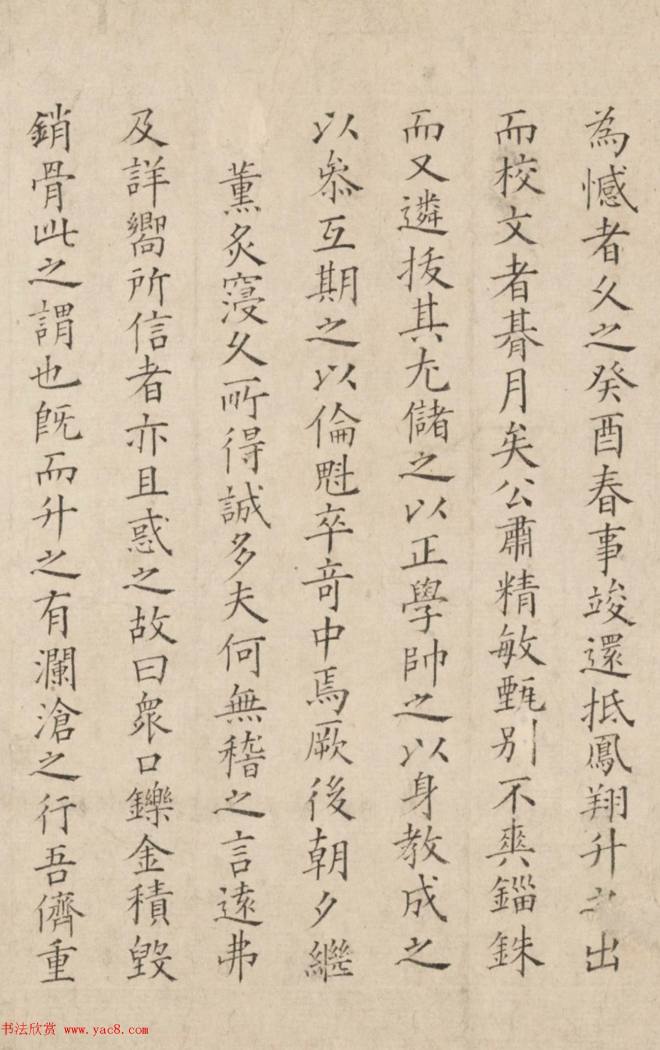 為憾者久之癸酉春事竣還抵鳳翔升之出
而校文者朞月矣公肅精敏甄別不爽錙銖
而又遴拔其尤儲之以正學帥之以身教成之
以叅互期之以倫魁卒竒中焉厥後朝夕繼
薰炙寖久所得誠多夫何無稽之言遠弗
及詳嚮所信者亦且惑之故曰衆口鑠金積毀
銷骨此之謂也旣而升之有瀾滄之行吾儕重
书法欣赏 www.yac8.com